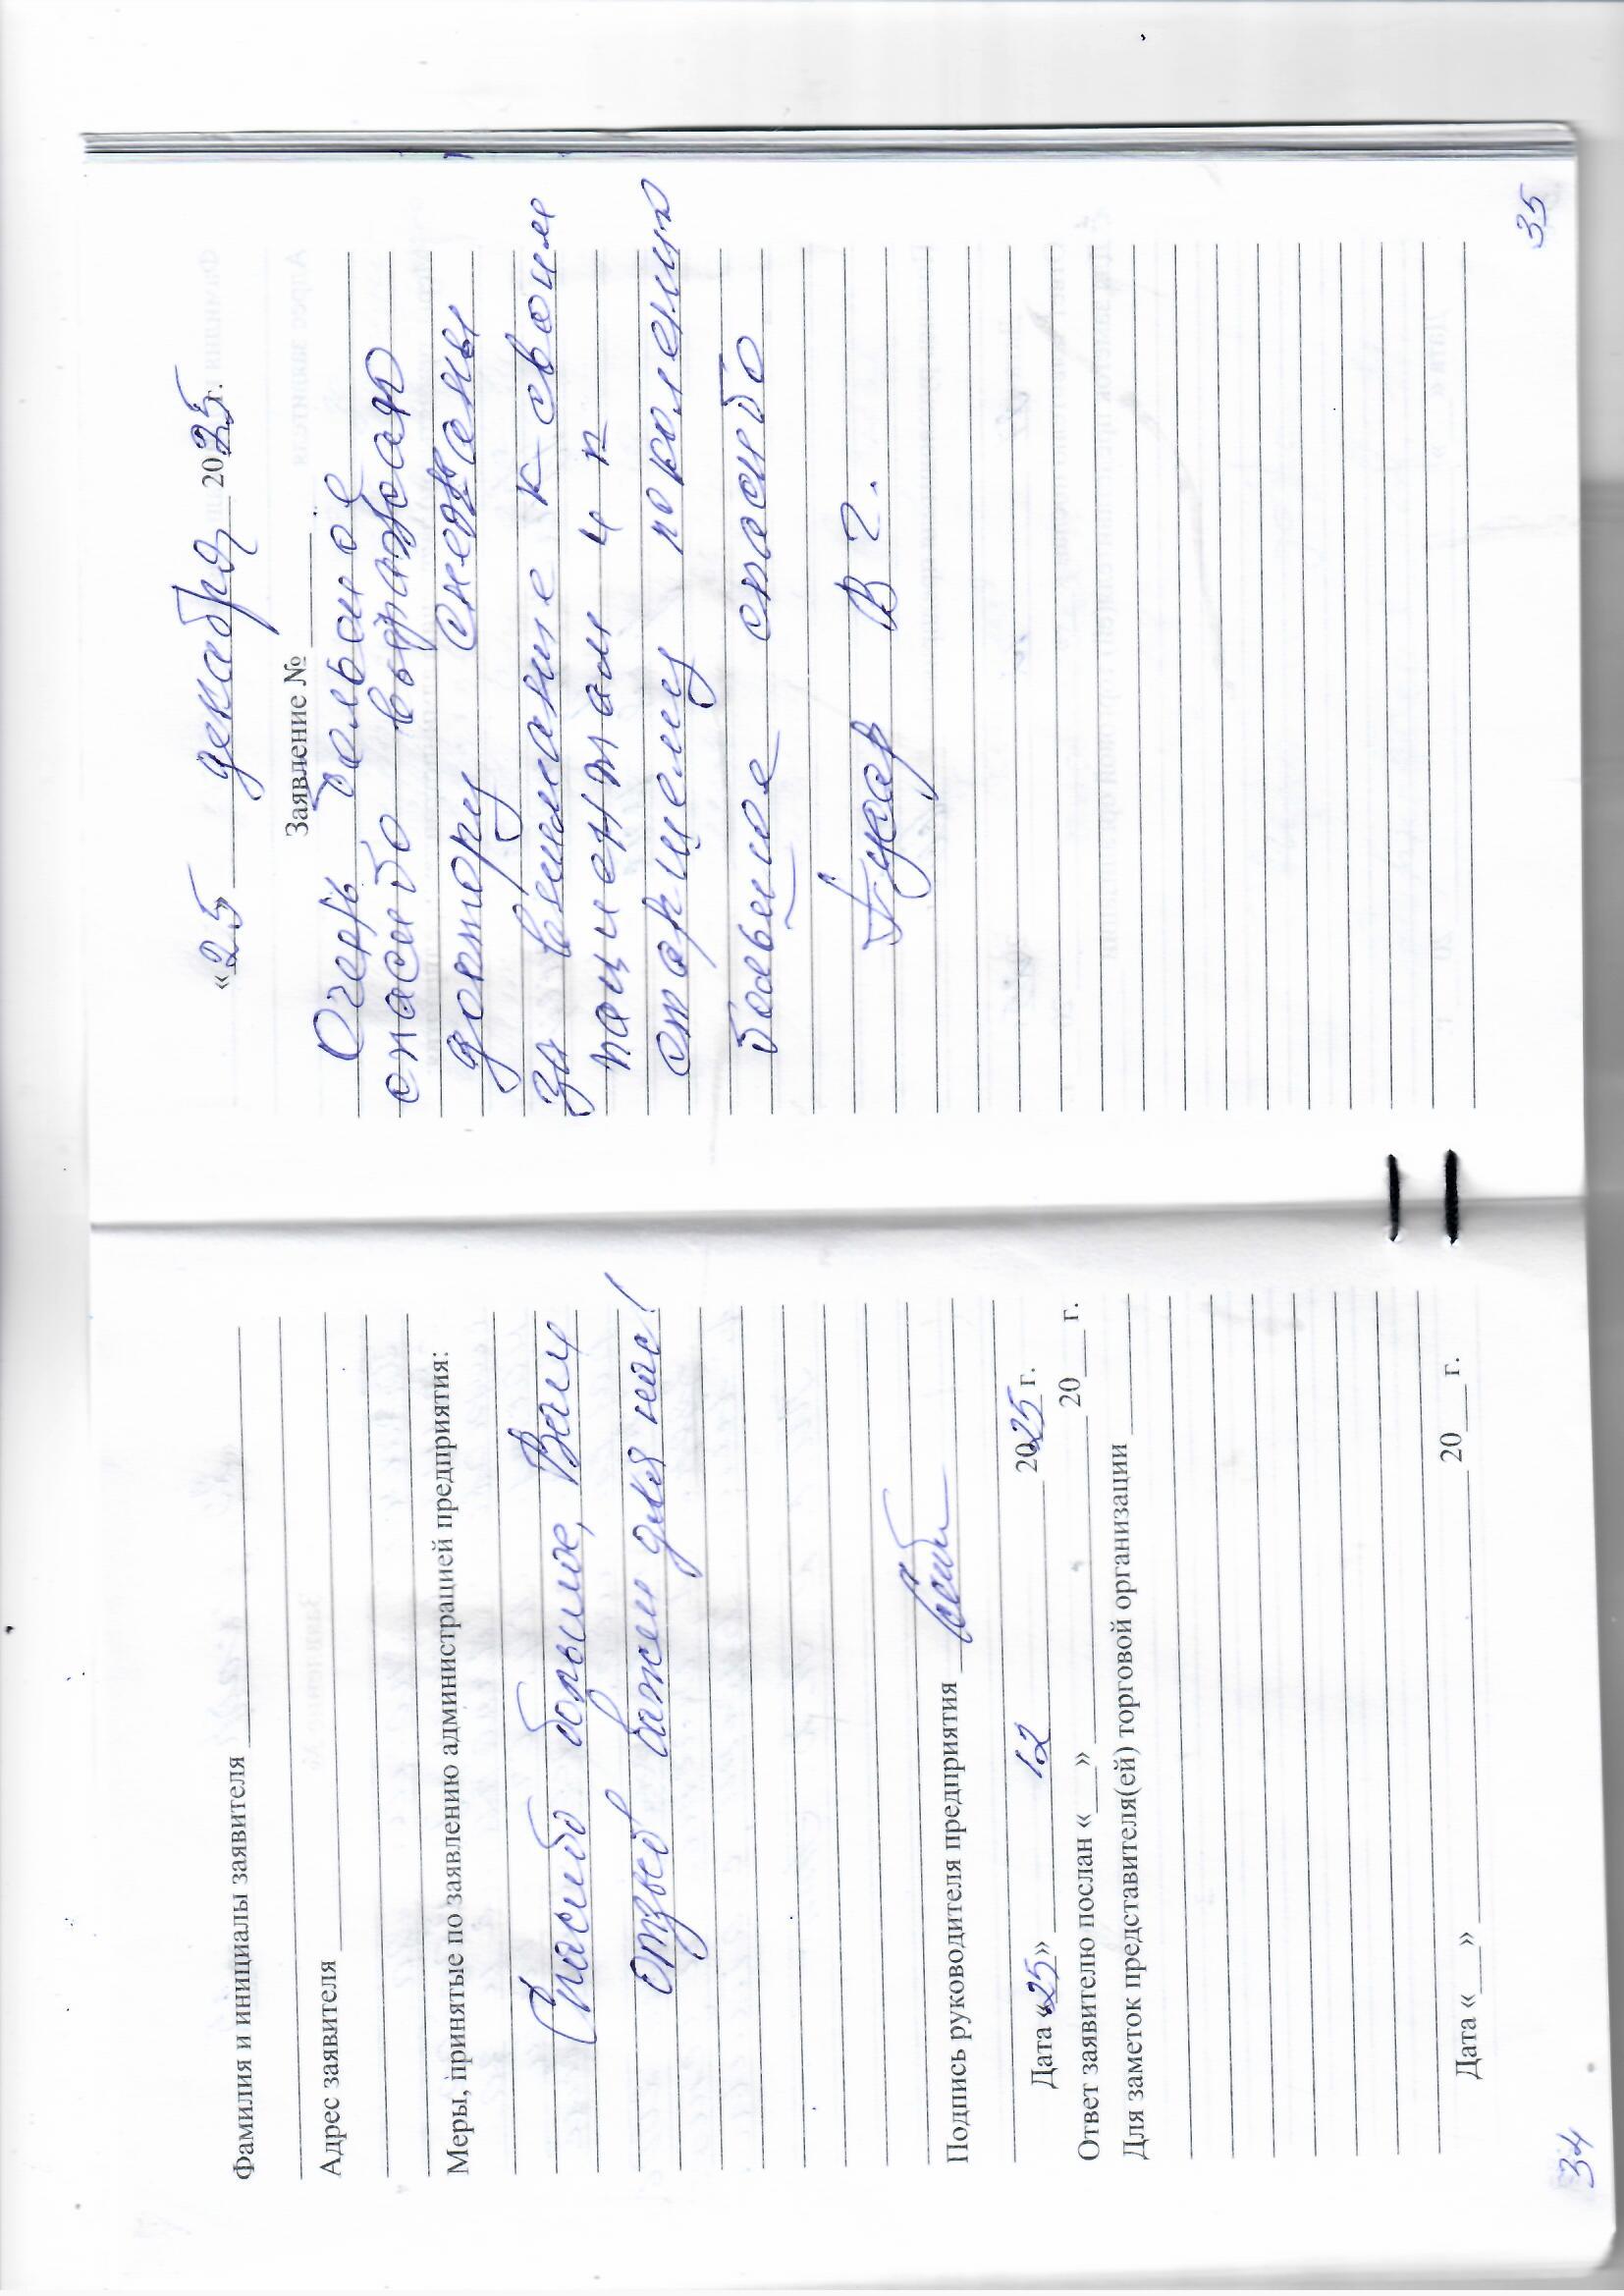 Фамилия и инициалы заявителя
Адрес заявителя
Меры, принятые по заявлению администрацией предприятия:
Спасибо большое, Ваш
отзыв важен для нас!
Подпись руководителя предприятия
Дата «25» 12 2025 г.
Ответ заявителю послан «___» 20___ г.
Для заметок представителя(ей) торговой организации
Дата «___» 20___ г.
34
«25 декабря 2025 г.
Заявление №
Очень большое
спасибо выражаю
доктору Снежаны
За внимание к своим
пациентам и к
старшему поколению
большое спасибо
В Г.
35